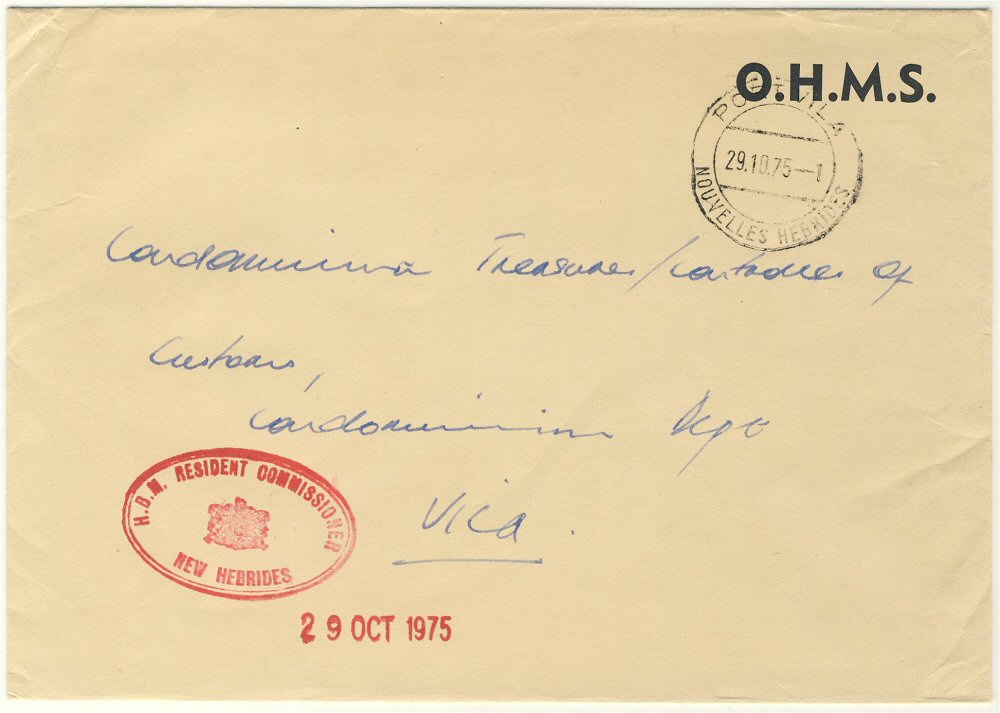 O.H.M.S.
PORT VILA
29.10.75—1
NOUVELLES HEBRIDES
Condominium Treasurer/Controller of
Customs,
Condominium
Vila.
H.B.M. RESIDENT COMMISSIONER
NEW HEBRIDES
29 OCT 1975